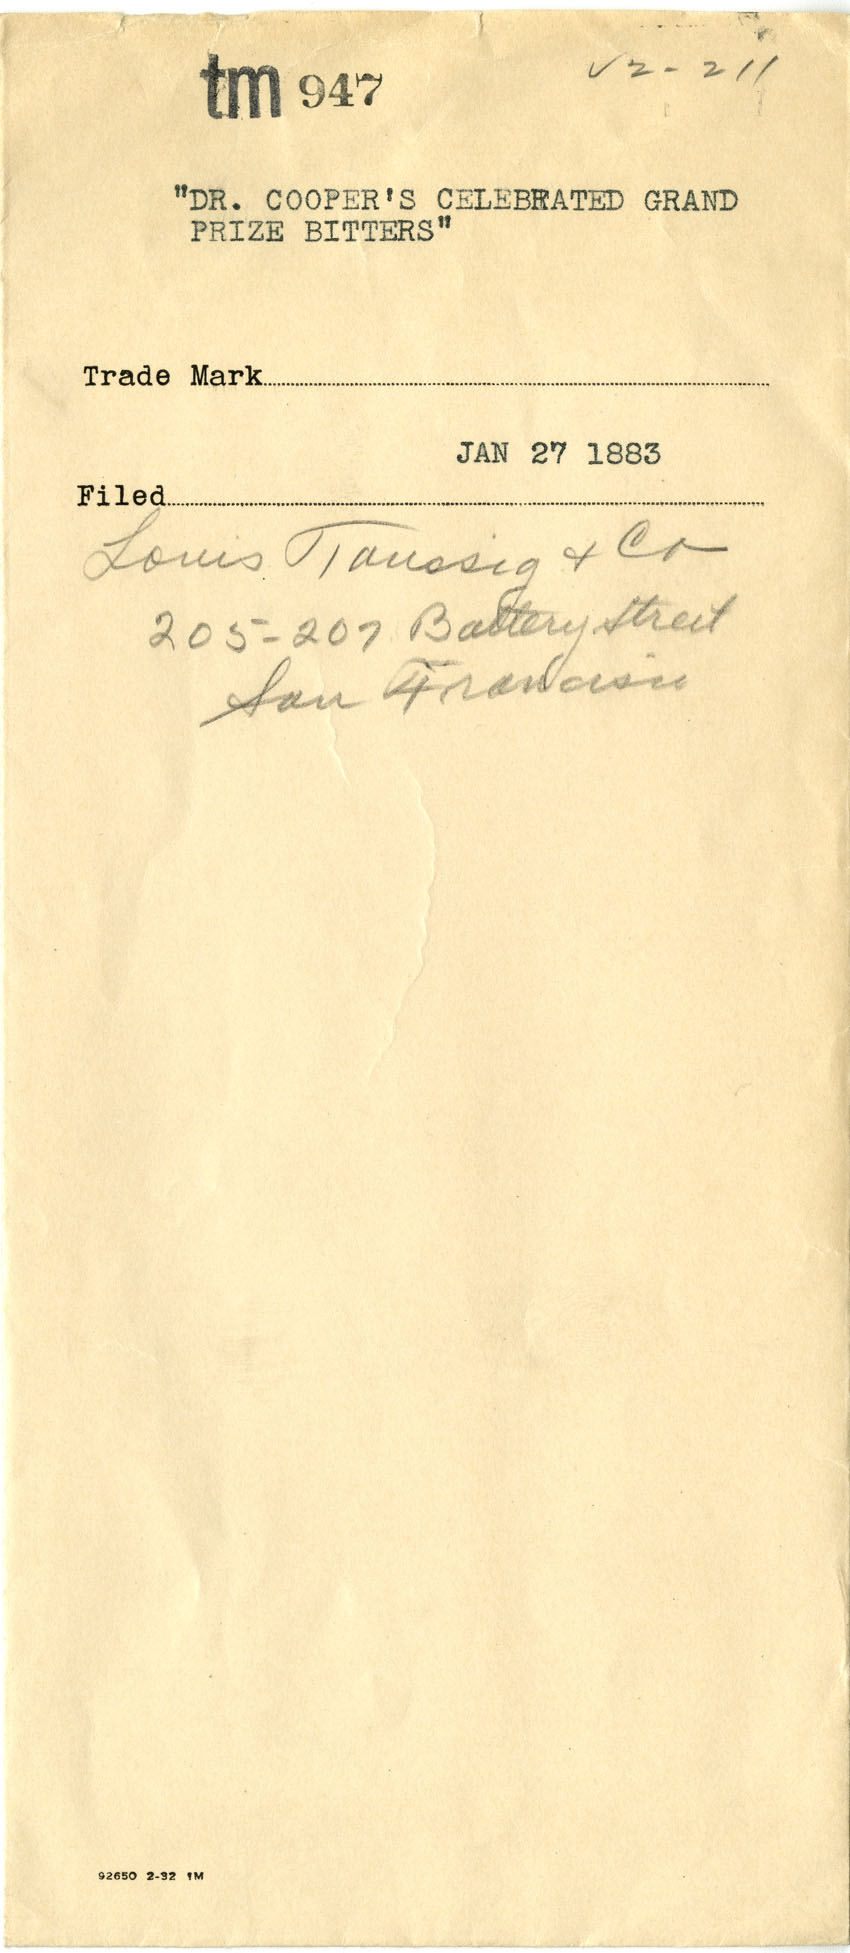 tm 947
V2-211
"DR. COOPER'S CELEBRATED GRAND
PRIZE BITTERS"
Trade Mark
JAN 27 1883
Filed
Louis Taussig & Co
205-207 Battery Street
San Francisco
92650 2-32 1M